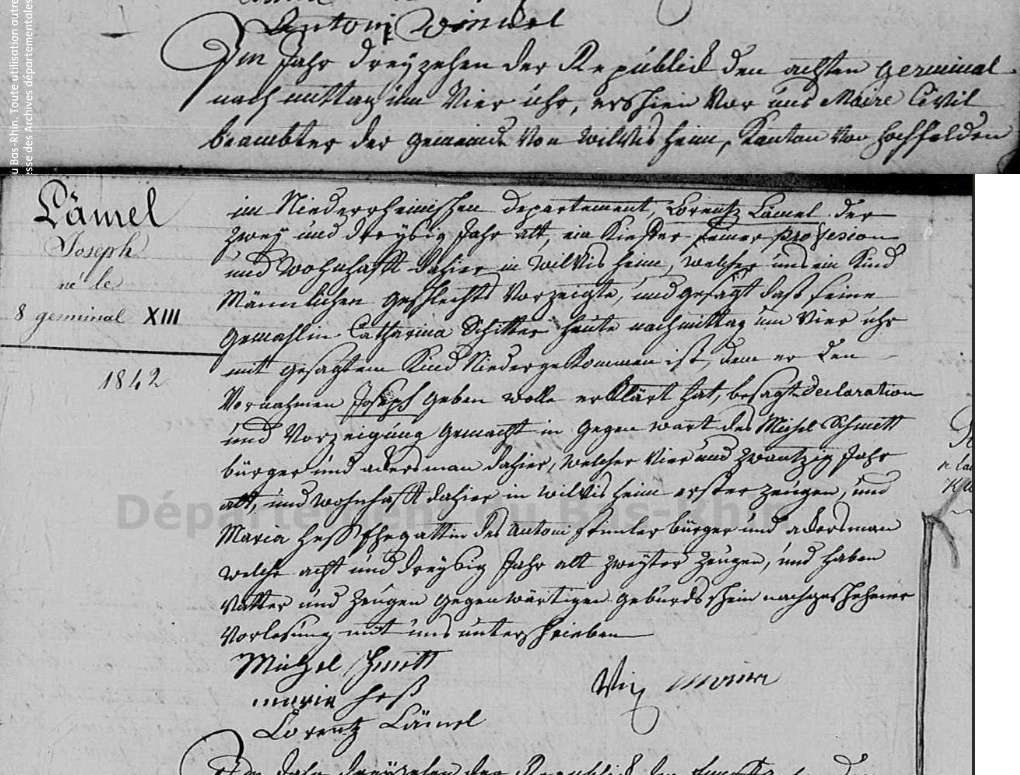 Antoni Winckel
Im Jahr dreyzehen der Republick den achten germinal
nach mittag um Vier uhr, erschien Vor uns Maire Civil
beambter der gemeinde Von Wilwisheim, Kanton Von Hochfelden
Lämel
Joseph
né le
8 germinal XIII
1842
im Niederrheinischen departement, Lorentz Lämel der
zwey und dreysig Jahr alt, ein Kiefter seiner profesion
und wohnhafft dahier in Wilwisheim, welcher uns ein Kind
Männlichen geschlechts Vorzeigte, und gesagt daß seine
gemahlin Catharina Schitter heute nachmittag um Vier uhr
mit gesagtem Kind Niedergekommen ist, dem er den
Vornahmen Joseph geben wolle erklärt hat, besagte declaration
und Vorzeigung gemacht in gegenwart des Michel Schmitt
bürger und ackersman dahier, welcher Vier und zwantzig Jahr
alt, und wohnhafft dahier in Wilwisheim erster zeugen, und
Maria Heß Ehegattin des Antoni bürger und ackersman
welche acht und dreysig Jahr alt zweyter zeugen, und haben
Vatter und zeugen gegenwärtigen geburds schein nachgeschehener
Vorlesung mit uns unterschrieben
Michel schmitt
maria heß
Lorentz Lämel
Vix maire
Im Jahr dreyzehen der Republick den
Département du Bas-Rhin